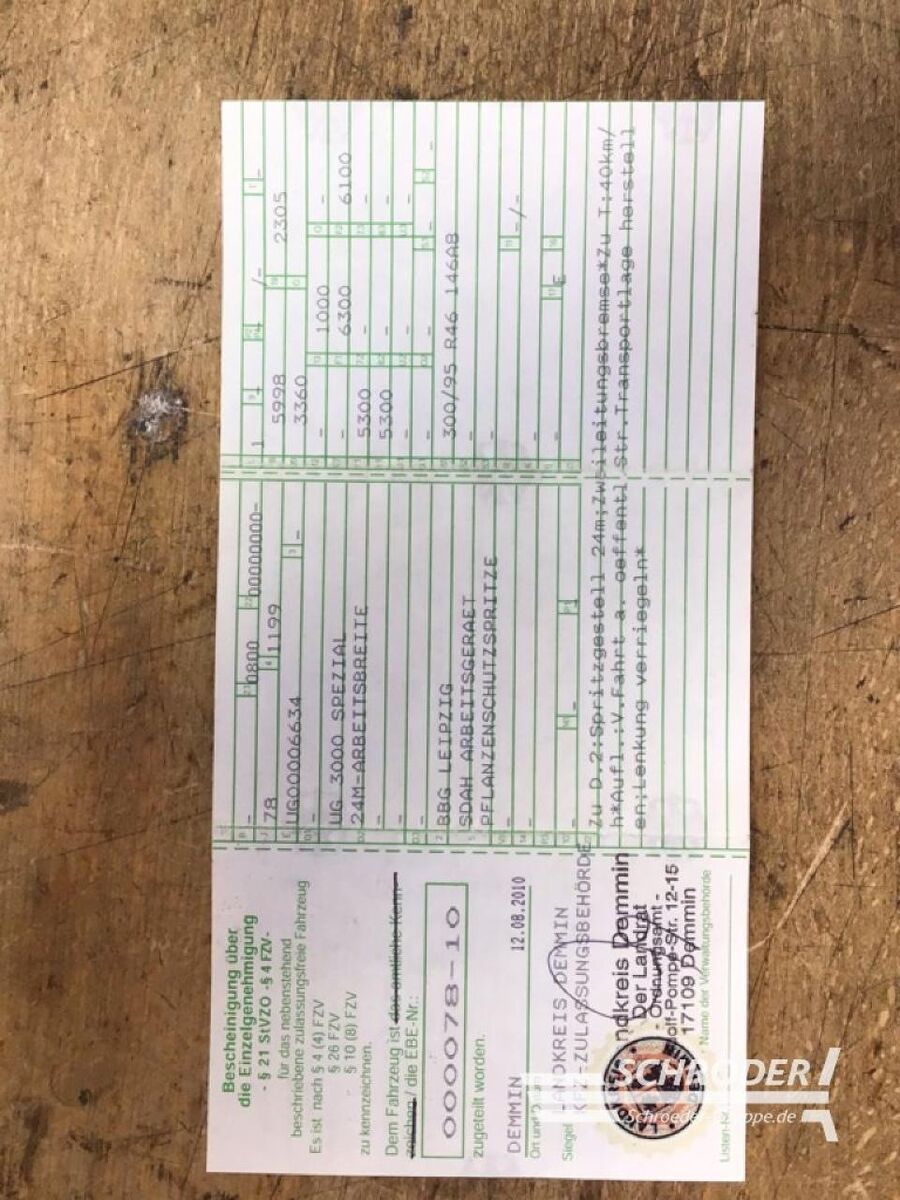 Bescheinigung über
die Einzelgenehmigung
- § 21 StVZO - § 4 FZV-
für das nebenstehend
beschriebene zulassungsfreie Fahrzeug
Es ist nach § 4 (4) FZV
§ 26 FZV
§ 10 (8) FZV
zu kennzeichnen.
Dem Fahrzeug ist das amtliche Kenn-
zeichen / die EBE-Nr.:
000078-10
zugeteilt worden.
DEMMIN 12.08.2010
Ort und
Siegel LANDKREIS DEMMIN
KFZ-ZULASSUNGSBEHÖRDE
ndkreis Demmin
Der Landrat
- Ordnungsamt -
olf-Pompe-Str. 12-15
17109 Demmin
Name der Verwaltungsbehörde
Listen-Nr.
- 0800 00000000-
78 1199
UG00006634 -
-
UG 3000 SPEZIAL
24M-ARBEITSBREITE
-
-
BBG LEIPZIG
SDAH ARBEITSGERAET
PFLANZENSCHUTZSPRITZE
- -
1 /- -
5998 2305
3360
- 1000 -
- 6300 6100
5300 - -
5300 - -
- - -
- - -
300/95 R46 146A8
-
-
- -/-
-
- E
Zu D.2:Spritzgestell 24m;Zweileitungsbremse*Zu T:40km/
h*Aufl.:V.Fahrt a. oeffentl Str.Transportlage herstell
en;Lenkung verriegeln*
SCHRÖDER